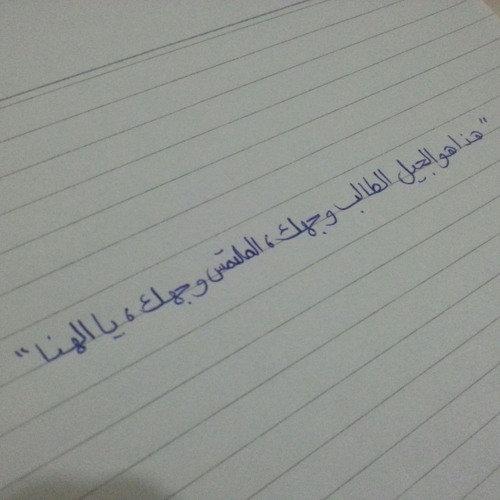 "هذا هو الجيل الطالب وجهك، الملتمس وجهك، يا الهنا"